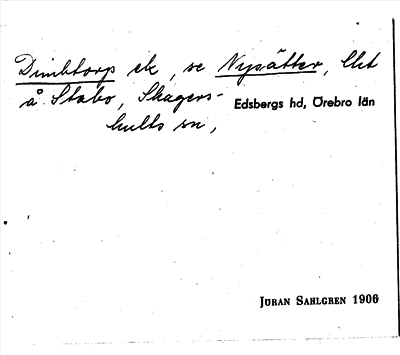 Dimbtorp ek, se Nysätter, lht
å Stabo, Skagers-
hults sn,
Edsbergs hd, Örebro län
JÖRAN SAHLGREN 1906